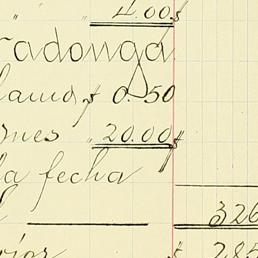 " " 4.00 $
radonga
lamo, $ 0.50
nes " 20.00 $
la fecha
326
rior $ 285